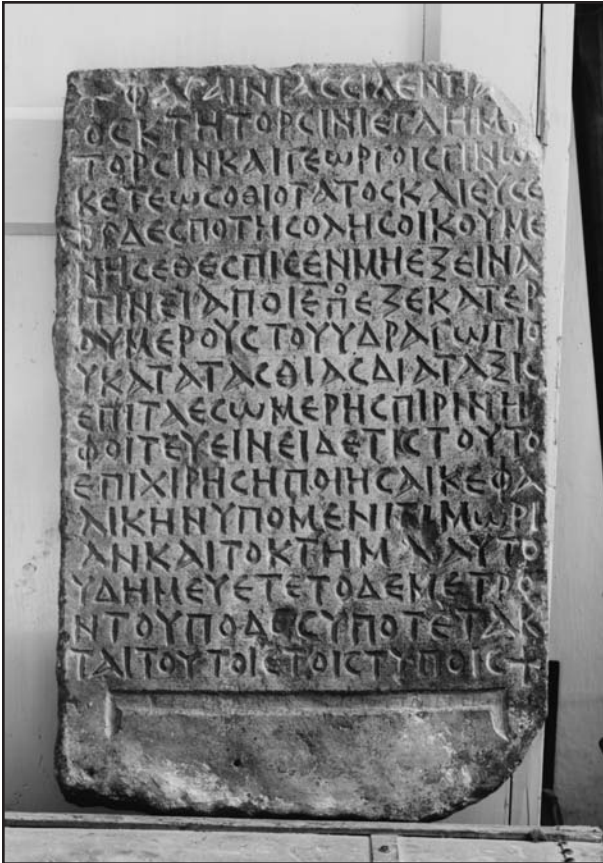 ϹϹΙΛΕΝΤΙΑ
ΟϹΚΤΗΤΟΡϹΙΝΙΕΓΛΗΜ
ΤΟΡϹΙΝΚΑΙΓΕωΡΓΟΙϹΓΙΝω
ΚΕΤΕωϹΟΘΙΟΤΑΤΟϹΚΑΙΕΥϹΕ
ΔΕϹΠΟΤΗϹΟΛΗϹΟΙΚΟΥΜΕ
ΝΗϹΕΘΕϹΠΙϹΕΝΜΗΕΞΕΙΝΑ
ΙΤΙΝΕΙΑΠΟΙΕ ΕΞΕΚΑΤΕΡ
ΟΥΜΕΡΟΥϹΤΟΥΥΔΡΑΓωΓΙΟ
ΥΚΑΤΑΤΑϹΘΙΑϹΔΙΑΤΑΞΙϹ
ΕΠΙΤΑΕϹωΜΕΡΗϹΠΙΡΙΝΗ
ΦΟΙΤΕΥΕΙΝΕΙΔΕΤΙϹΤΟΥΤΟ
ΕΠΙΧΙΡΗϹΗΠΟΙΗϹΑΙΚΕΦΑ
ΛΙΚΗΝΥΠΟΜΕΝΙΤΙΜωΡΙ
ΑΝΚΑΙΤΟΚΤΗΜΑΑΥΤΟ
ΥΔΗΜΕΥΕΤΕΤΟΔΕΜΕΤΡΟ
ΝΤΟΥΠΟΔΟϹΥΠΟΤΕΤΑΚ
ΤΑΙΤΟΥΤΟΙϹΤΟΙϹΤΥΠΟΙϹ+